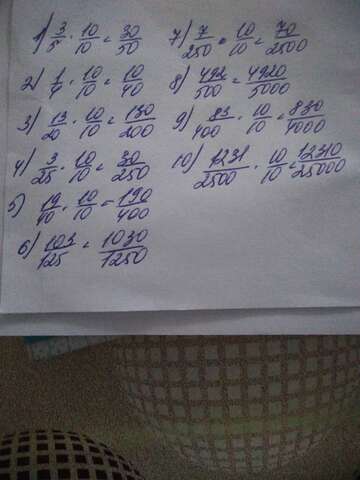 1) 3/5 · 10/10 = 30/50
2) 1/4 · 10/10 = 10/40
3) 13/20 · 10/10 = 130/200
4) 3/25 · 10/10 = 30/250
5) 19/40 · 10/10 = 190/400
6) 103/125 = 1030/1250
7) 7/250 · 10/10 = 70/2500
8) 492/500 = 4920/5000
9) 83/400 · 10/10 = 830/4000
10) 1231/2500 · 10/10 = 12310/25000